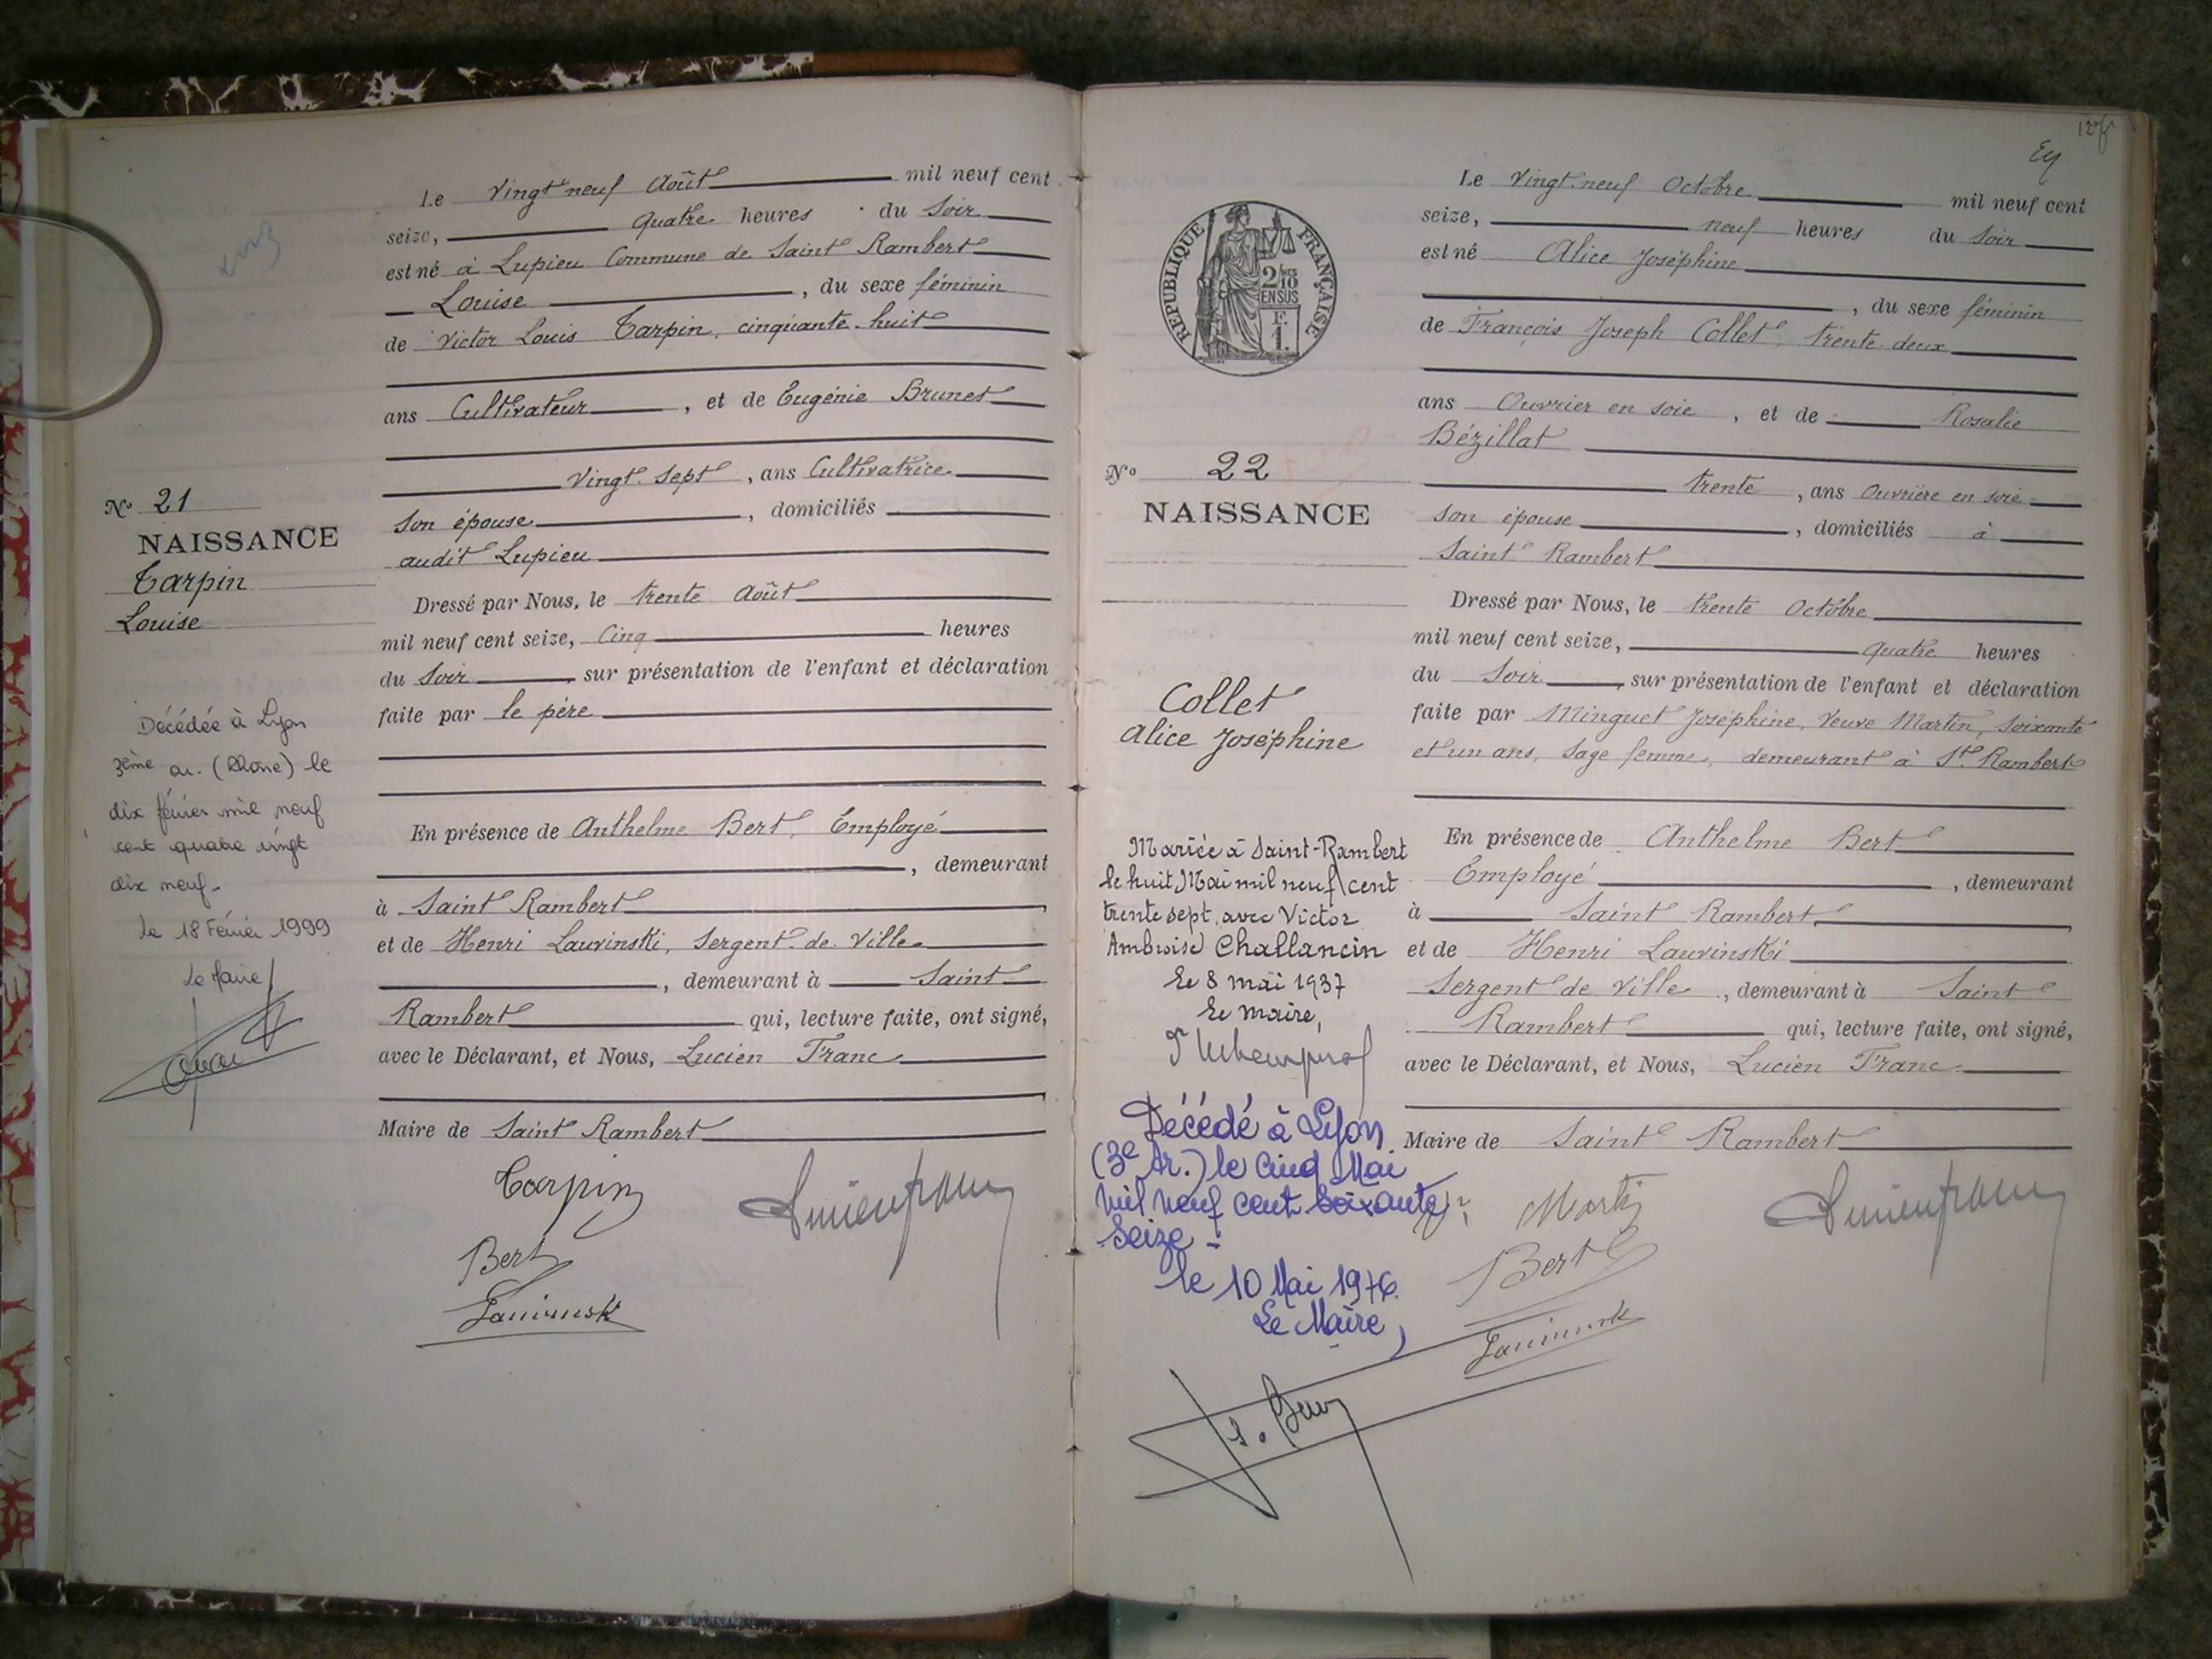 Le Vingt neuf Août mil neuf cent
seize, quatre heures du Soir
est né à Lupieu Commune de Saint Rambert
Louise, du sexe féminin
de Victor Louis Tarpin, cinquante-huit
ans Cultivateur, et de Eugénie Brunet
Vingt-Sept, ans Cultivatrice
Son épouse, domiciliés
audit Lupieu
Dressé par Nous, le trente Août
mil neuf cent seize, Cinq heures
du Soir, sur présentation de l'enfant et déclaration
faite par le père
En présence de Anthelme Bert, Employé
, demeurant
à Saint Rambert
et de Henri Lauvinski, Sergent-de-Ville
, demeurant à Saint
Rambert qui, lecture faite, ont signé,
avec le Déclarant, et Nous, Lucien Franc
Maire de Saint Rambert
Tarpin
Bert
No 21
NAISSANCE
Tarpin
Louise
Décédée à Lyon
3ème ar. (Rhône) le
dix février mil neuf
cent quatre vingt
dix neuf-
le 18 Février 1999
Le Maire
Le Vingt-neuf Octobre mil neuf cent
seize, neuf heures du Soir
est né Alice Joséphine
, du sexe féminin
de François Joseph Collet, trente deux
ans Ouvrier en soie, et de Rosalie
Bézillat
trente, ans Ouvrière en soie
Son épouse, domiciliés à
Saint Rambert
Dressé par Nous, le trente Octobre
mil neuf cent seize, quatre heures
du Soir, sur présentation de l'enfant et déclaration
faite par Minguet Joséphine, Veuve Martin, soixante
et un ans, Sage femme, demeurant à St Rambert
En présence de Anthelme Bert
Employé, demeurant
à Saint Rambert,
et de Henri Lauvinski
Sergent de Ville, demeurant à Saint
Rambert qui, lecture faite, ont signé,
avec le Déclarant, et Nous, Lucien Franc
Maire de Saint Rambert
Martin
Bert
REPUBLIQUE FRANÇAISE
2/10
EN SUS
F.
1.
No 22
NAISSANCE
Collet
Alice Joséphine
Mariée à Saint-Rambert
le huit Mai mil neuf cent
trente sept, avec Victor
Ambroise Challancin
Le 8 mai 1937
Le maire,
Décédé à Lyon
(3e Ar.) le Cinq Mai
mil neuf cent soixante
Seize -
le 10 Mai 1976.
Le Maire,